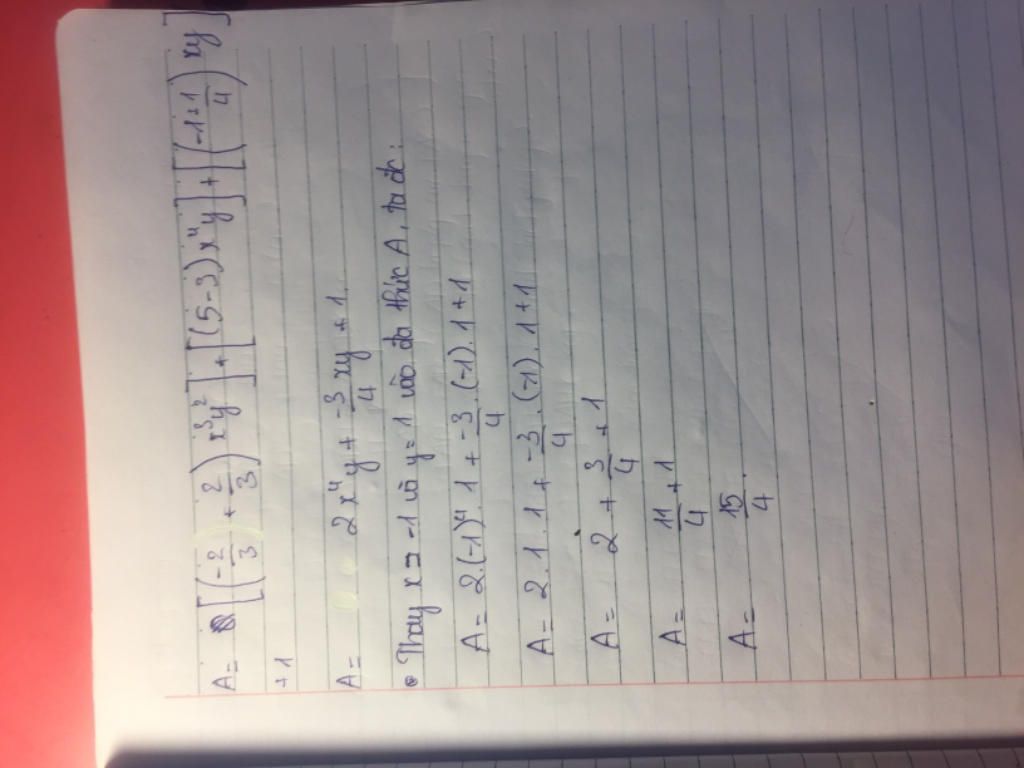 A = [(-2/3 + 2/3) x³y²] + [(5-3) x⁴y] + [(-1+1/4) xy]
+1
A = 2x⁴y + -3/4 xy + 1.
• Thay x = -1 và y = 1 vào đa thức A, ta đc:
A = 2.(-1)⁴.1 + -3/4.(-1).1+1
A = 2.1.1 + -3/4.(-1).1+1
A = 2 + 3/4 + 1
A = 11/4 + 1
A = 15/4.